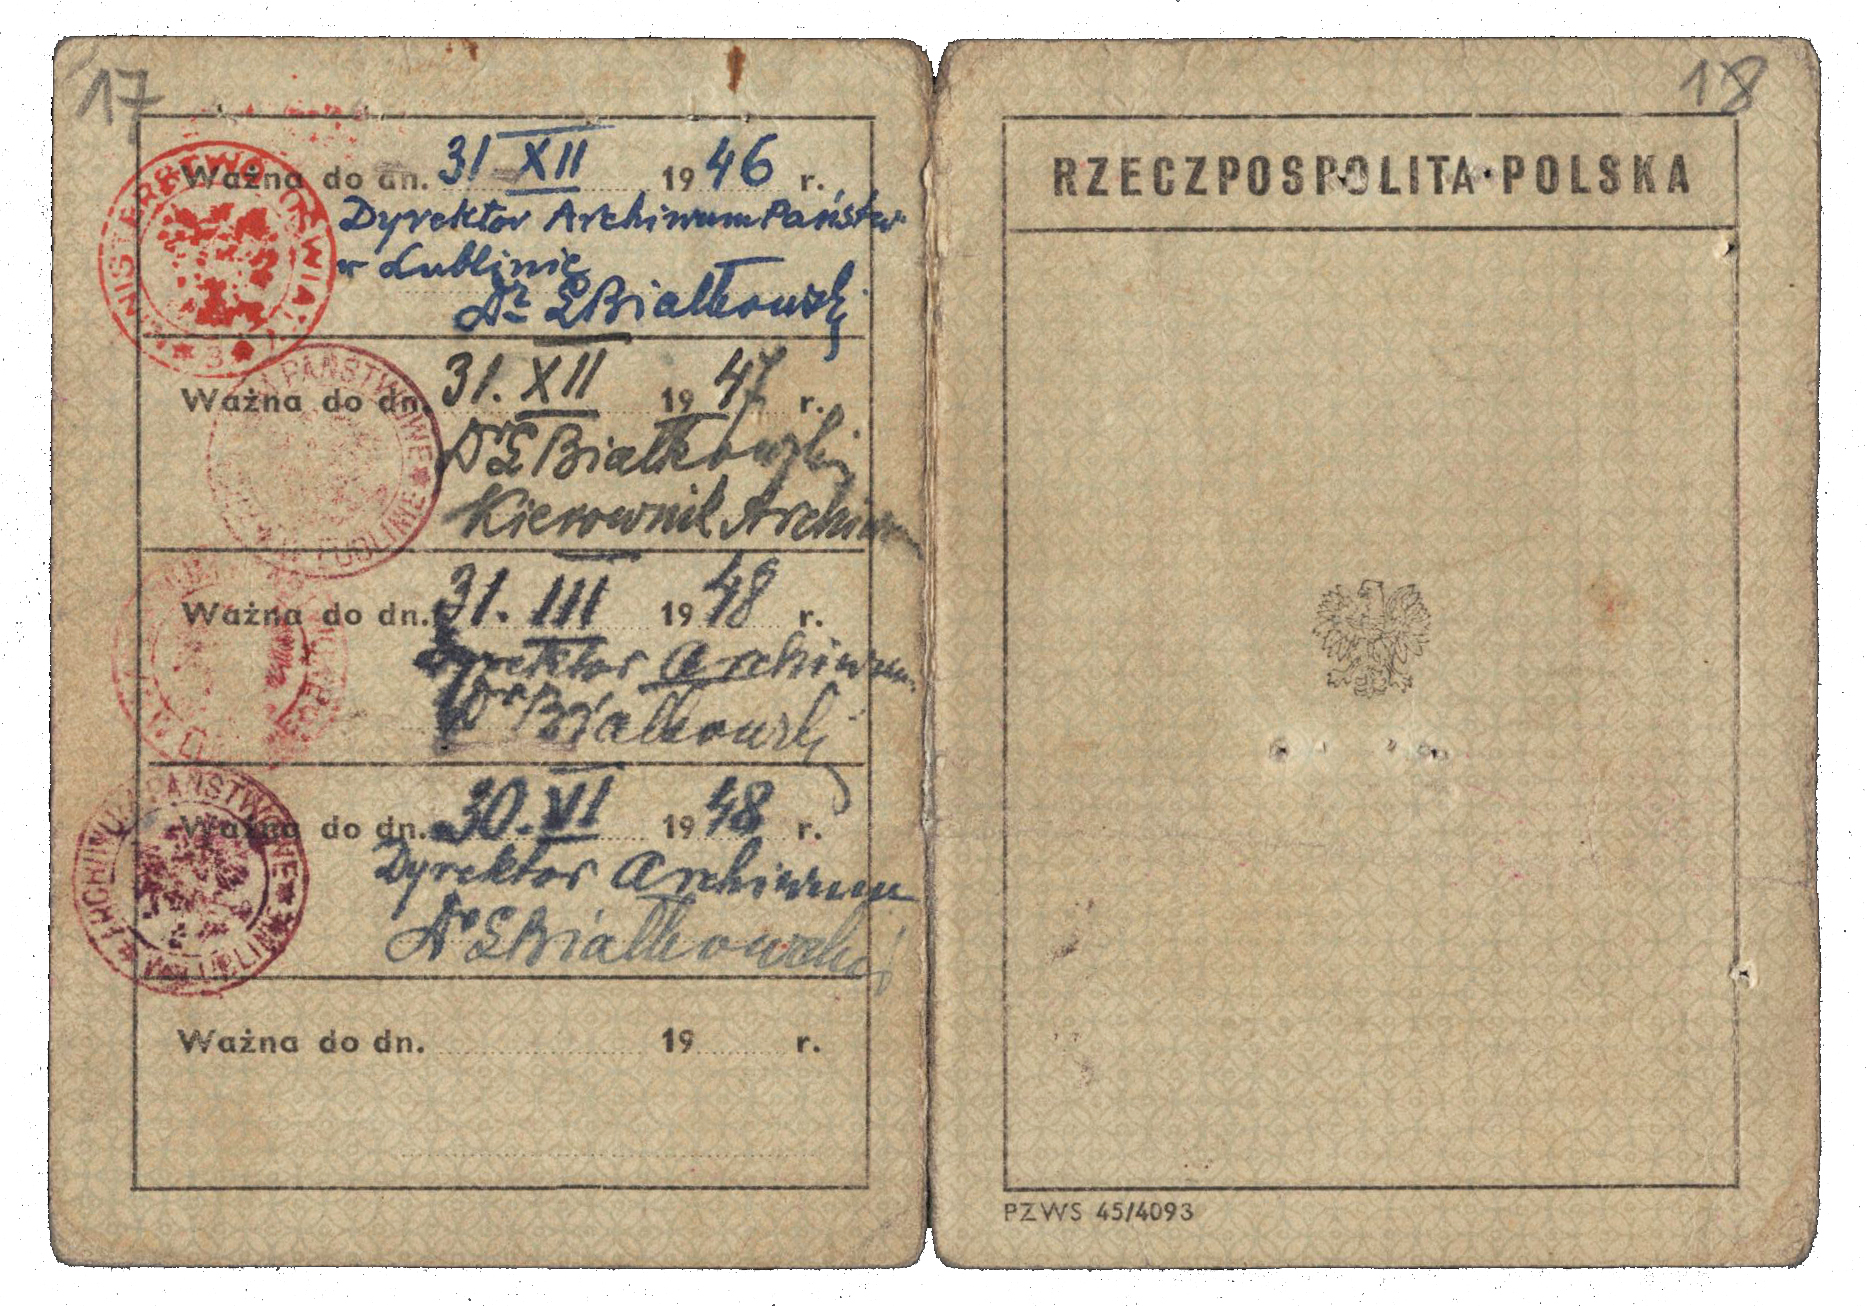 17
Ważna do dn. 31 XII 1946 r.
Dyrektor Archiwum Państw.
w Lublinie
Dr L Białkowski
Ważna do dn. 31. XII 1947 r.
Dr L Białkowski
Kierownik Archiwum
PAŃSTWOWE
W LUBLINIE
Ważna do dn. 31. III 1948 r.
Dyrektor Archiwum
Dr Białkowski
Ważna do dn. 30. VI 1948 r.
Dyrektor Archiwum
Dr L Białkowski
ARCHIWUM PAŃSTWOWE
W LUBLINIE
Ważna do dn. 19 r.
18
RZECZPOSPOLITA POLSKA
PZWS 45/4093